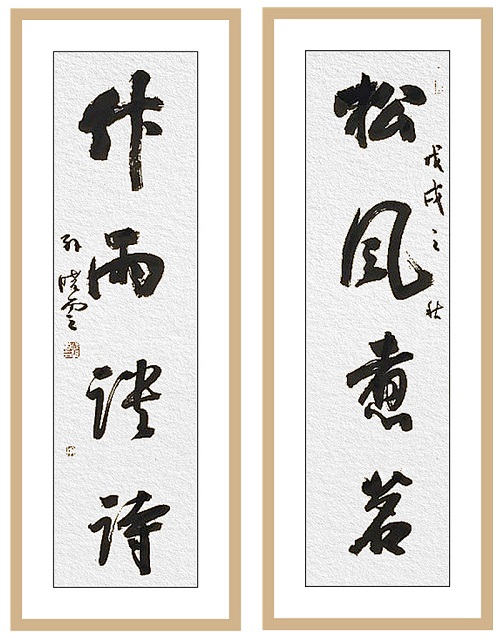 松风煮茗
戊戌之秋
竹雨谈诗
孙晓云